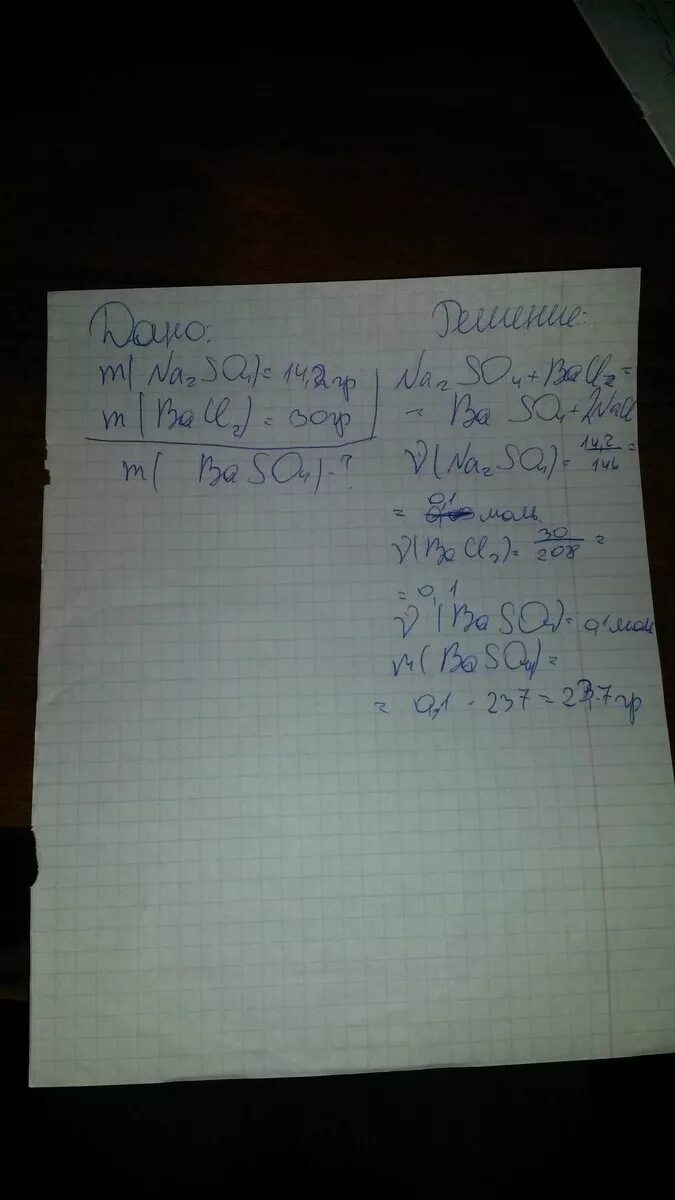 Дано:
m(Na₂SO₄)=14,2гр
m(BaCl₂)=30гр
m( BaSO₄)-?
Решение:
Na₂SO₄+BaCl₂=
= BaSO₄+2NaCl
ν(Na₂SO₄)=14,2/146=
= 0,1 моль
ν(BaCl₂)=30/208=
=0,1
ν(BaSO₄)=0,1моль
m(BaSO₄)=
= 0,1·237=23,7гр